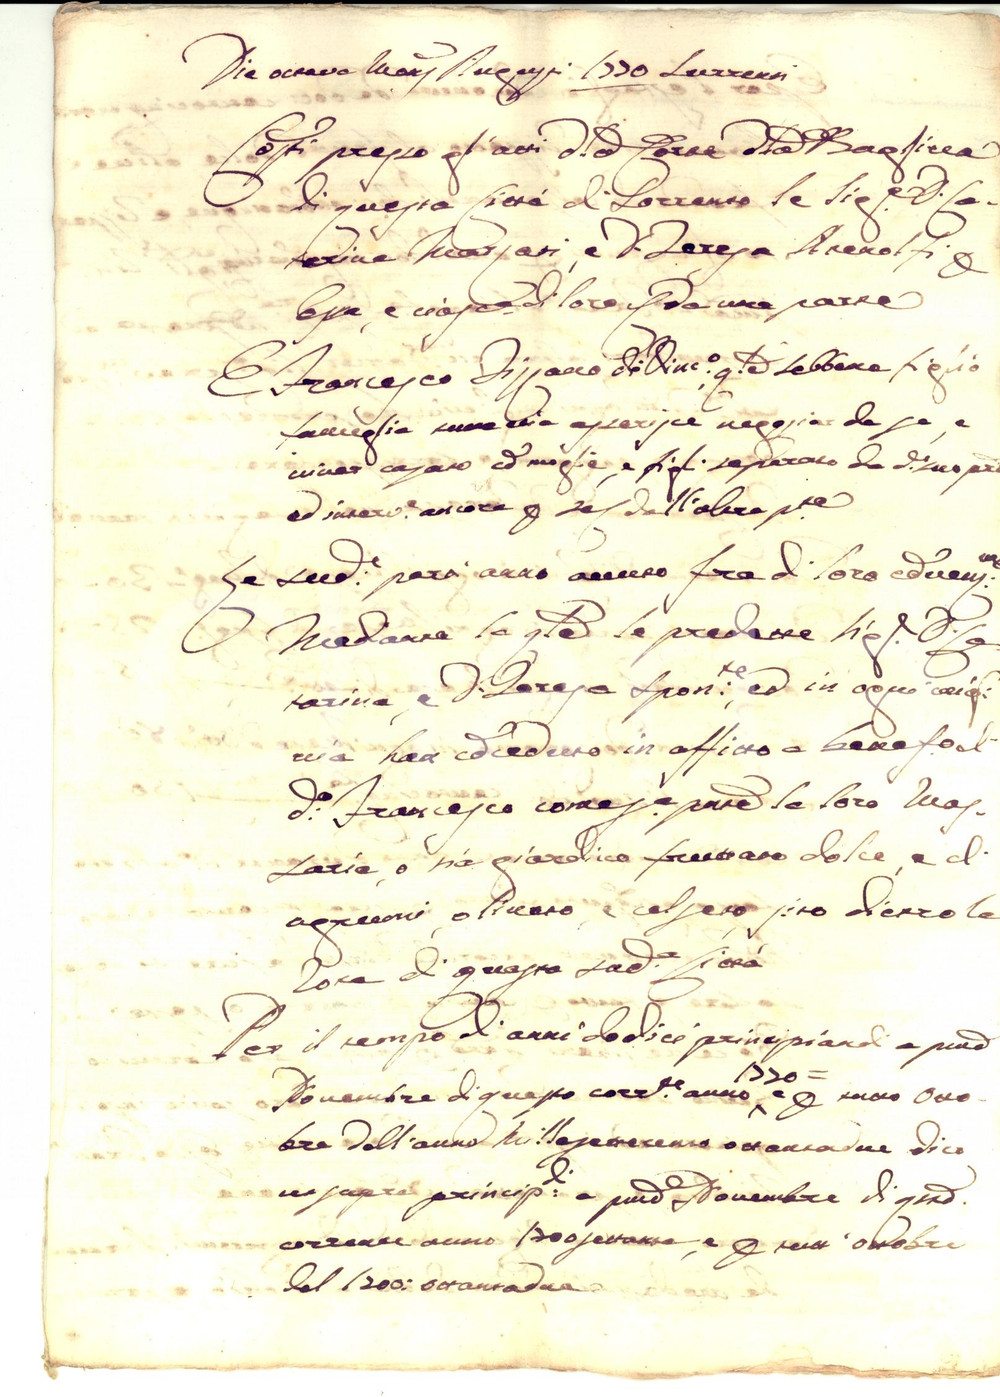 Die octavo Mens. Augusti 1770 Surrenti
Cost.i presso gl'atti d.a Corte d.a Bagliva
di questa Città di Sorrento le Sig.re D. Ca-
terina Marzati, e D. Teresa
essa, e ciasche. di loro da una parte
E Francesco di Dinc.o q.le sebbene figlio
famiglia tuttavia asserisce negoziar da se, e
viver casato co' moglie, e figli separato da di suo pre
ed interv.e ancora dall'altra p.te
Le sud.e parti anno avuto fra di loro convenz.ne
Mediante la q.le le predette Sig.re D. Ca
tarina, e D. Teresa spon.te, ed in ogni miglior
via han conceduto in affitto a beneficio del
d.o Francesco come s.a p.nte la loro Mas-
saria, o sia giardino fruttato dolce, e di
agrumi, olivato, e celzato, sito dietro la
Tora di questa sud.a Città
Per il tempo di anni dodici principiandi a p.mo
Novembre di questo corr.te anno 1770 = e p tutto Otto-
bre dell'anno Millesettecento ottantadue dico
principi.di a p.mo Novembre di q.sto
corrente anno 1700settanta, e p tutt'ottobre
del 1700: ottantadue